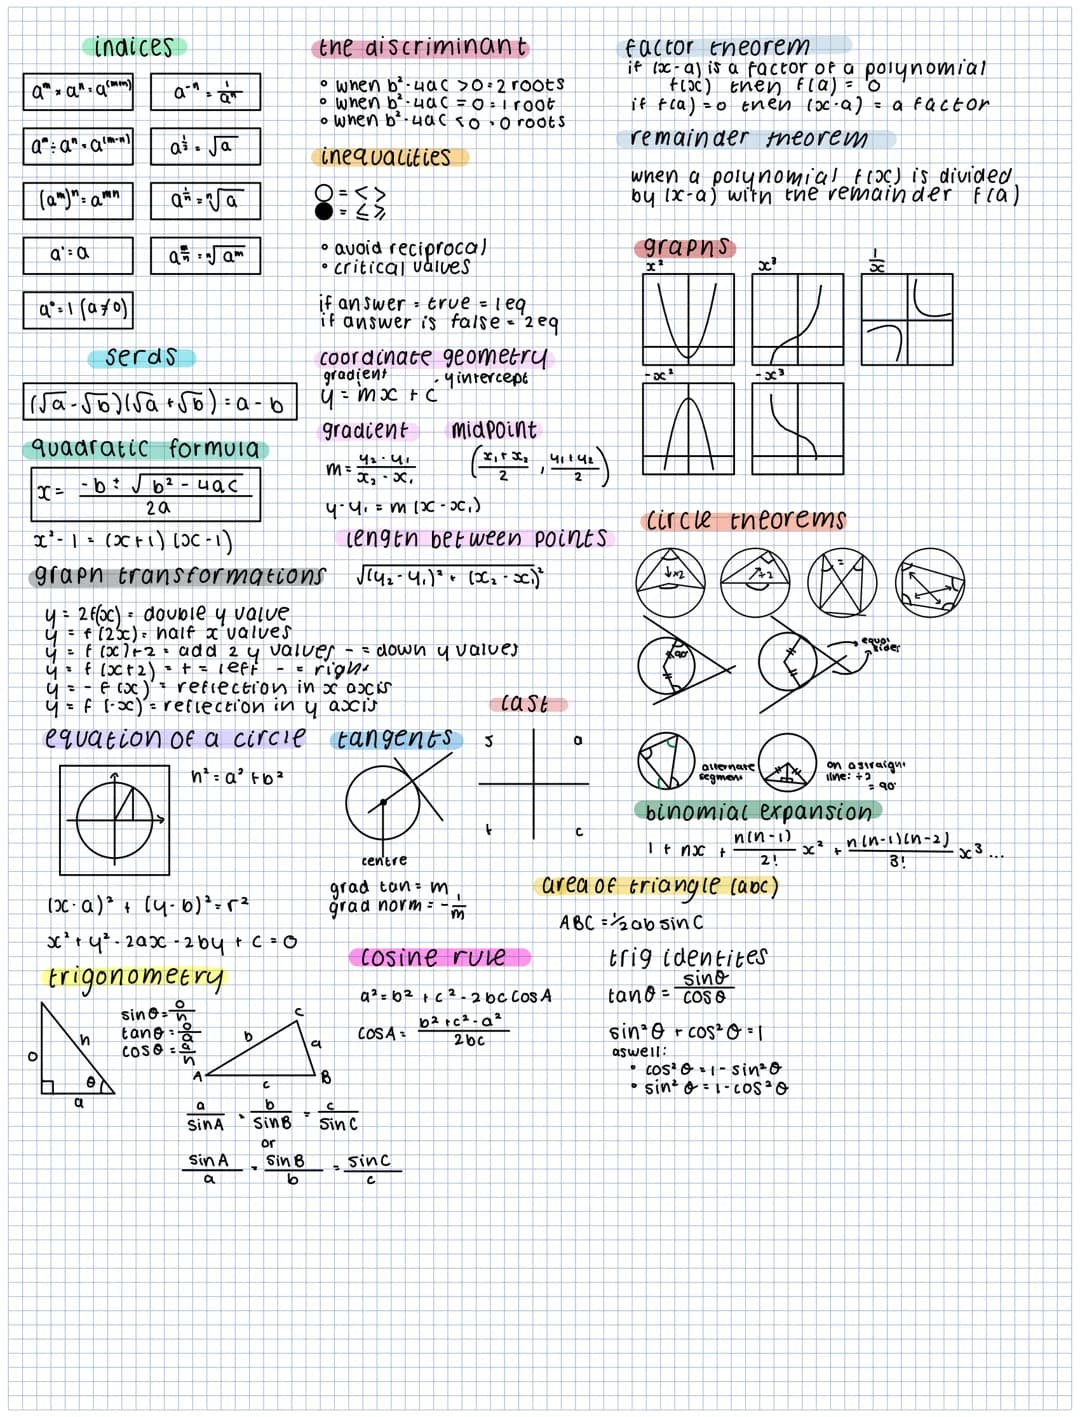 indices
aᵐ × aⁿ = a⁽ᵐ⁺ⁿ⁾
a⁻ⁿ = 1/aⁿ
aᵐ ÷ aⁿ = a⁽ᵐ⁻ⁿ⁾
a^½ = √a
(aᵐ)ⁿ = aᵐⁿ
a^(1/n) = ⁿ√a
a¹ = a
a^(m/n) = ⁿ√aᵐ
a⁰ = 1 (a≠0)
serds
(√a - √b)(√a + √b) = a - b
quadratic formula
x = (-b ± √b² - 4ac) / 2a
x² - 1 = (x+1)(x-1)
graph transformations
y = 2f(x) = double y value
y = f(2x) = half x values
y = f(x)+2 = add 2 y values - = down y values
y = f(x+2) = + = left - = right
y = -f(x) = reflection in x axis
y = f(-x) = reflection in y axis
equation of a circle
h² = a² + b²
(x-a)² + (y-b)² = r²
x² + y² - 2ax - 2by + c = 0
trigonometry
sinθ = o/h
tanθ = o/a
cosθ = a/h
o
h
θ
a
A
b
C
a
B
c
a/sinA = b/sinB = c/sinC
or
sinA/a = sinB/b = sinC/c
the discriminant
• when b²-4ac >0 = 2 roots
• when b²-4ac = 0 = 1 root
• when b²-4ac <0 = 0 roots
inequalities
= < >
= ≤ ≥
• avoid reciprocal
• critical values
if answer = true = 1eq
if answer is false = 2eq
coordinate geometry
gradient
y intercept
y = mx + c
gradient
midpoint
m = y₂ - y₁ / x₂ - x₁
(x₁+x₂/2 , y₁+y₂/2)
y - y₁ = m(x - x₁)
length between points
√(y₂ - y₁)² + (x₂ - x₁)²
cast
s
a
t
c
tangents
centre
grad tan = m
grad norm = -1/m
cosine rule
a² = b² + c² - 2bc cosA
cosA = b² + c² - a² / 2bc
factor theorem
if (x-a) is a factor of a polynomial
f(x) then f(a) = 0
if f(a) = 0 then (x-a) = a factor
remainder theorem
when a polynomial f(x) is divided
by (x-a) with the remainder f(a)
graphs
x²
x³
1/x
-x²
-x³
circle theorems
×2
÷2
=
90°
equal
sides
alternate
segment
on a straight
line: ÷2
= 90°
binomial expansion
1 + nx + n(n-1)/2! x² + n(n-1)(n-2)/3! x³ ...
area of triangle (abc)
ABC = ½ab sinC
trig identites
tanθ = sinθ/cosθ
sin²θ + cos²θ = 1
aswell:
• cos²θ = 1 - sin²θ
• sin²θ = 1 - cos²θ